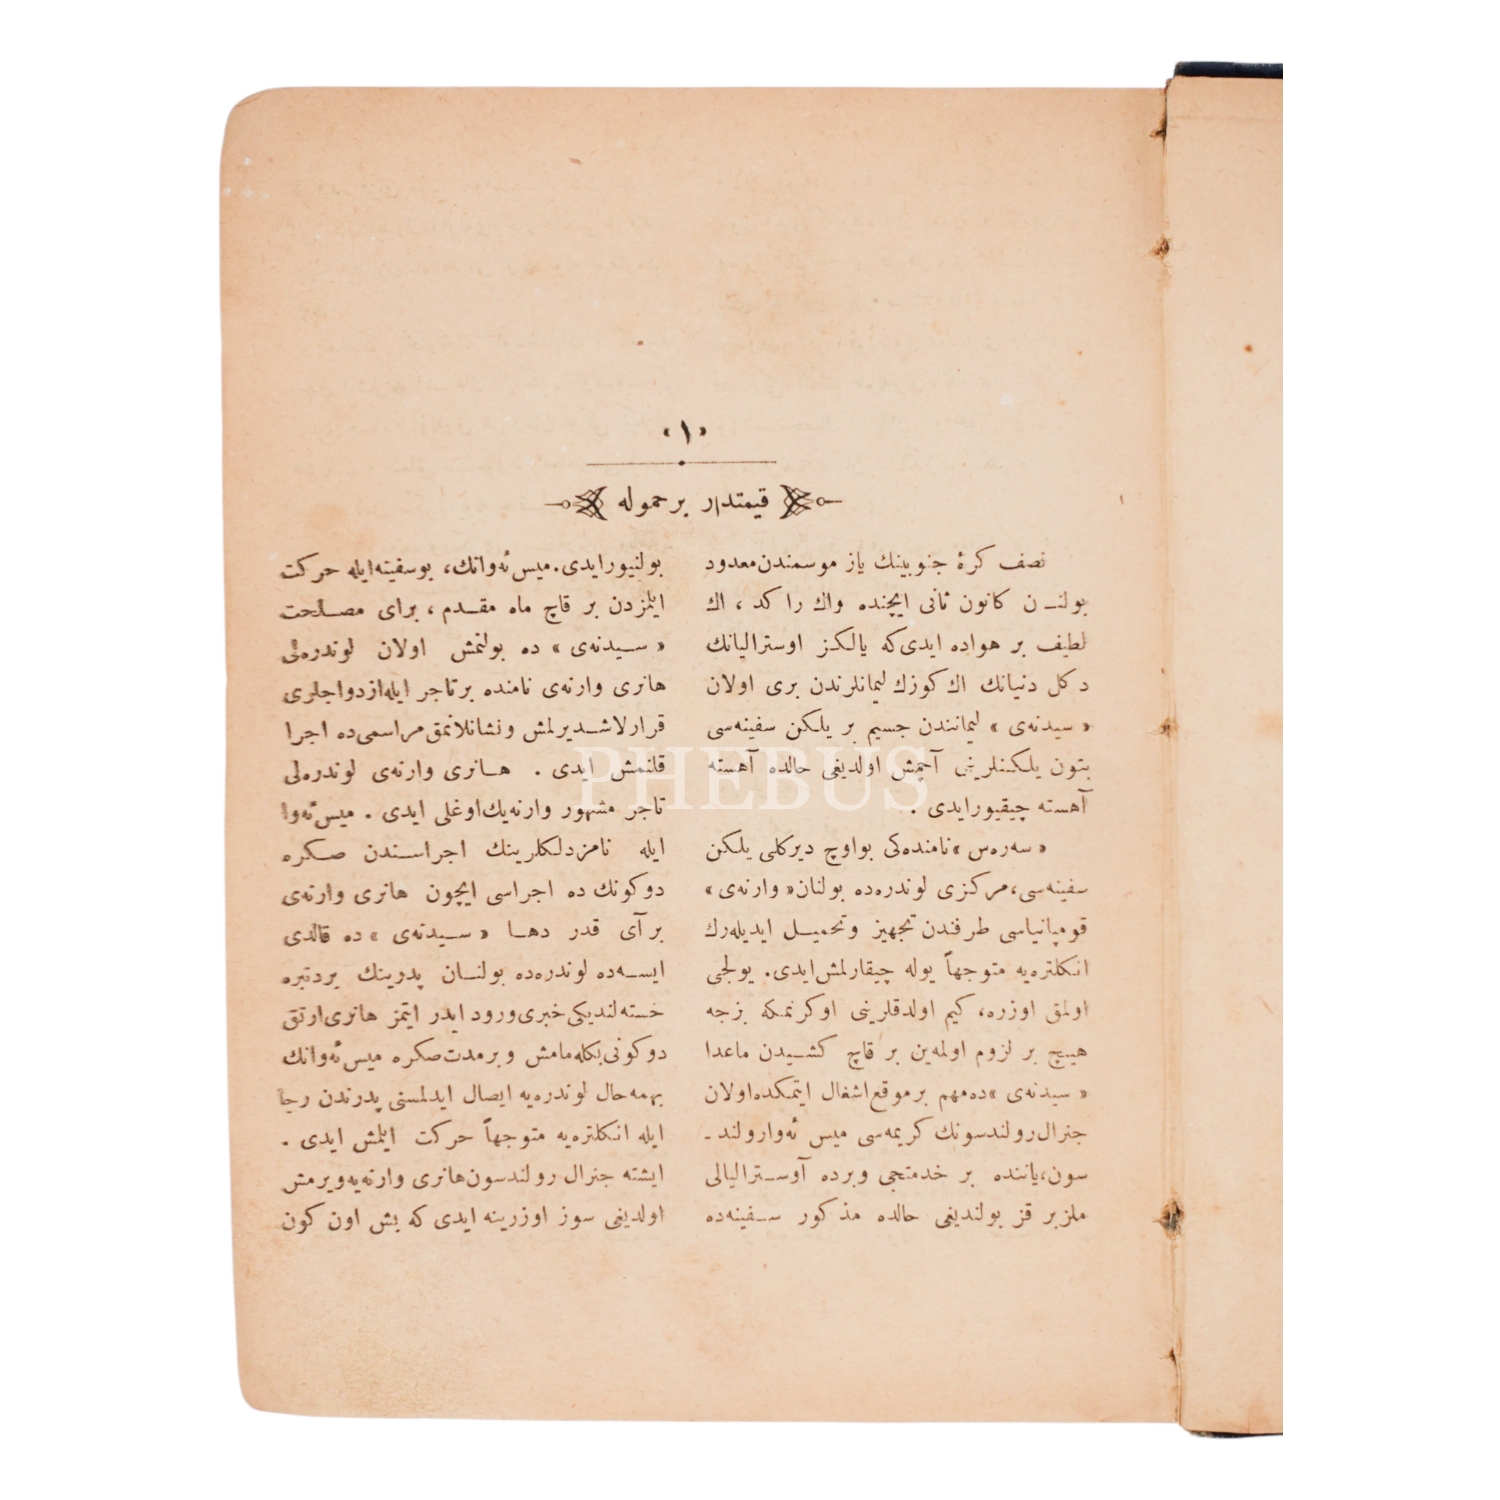 «١»
قیمتدار برحموله
نصف کرهٔ جنوبینك یاز موسمندن معدود
بولنـن کانون ثانی ایچنده واك راکد ، اك
لطیف بر هواده ایدی‌که یالکز اوسترالیانك
دکل دنیانك اك کوزك لیمانلرندن بری اولان
« سیدنه‌ی » لیمانندن جسیم بر یلکن سفینه‌سی
بتون یلکنلرینی آچمش اولدیغی حالده آهسته
آهسته چیقیورایدی .
« سه‌ره‌س » نامنده‌کی بواوچ دیرکلی یلکن
سفینه‌سی، مرکزی لوندره‌ده بولنان « وارنه‌ی »
قومپانیاسی طرفندن تجهیز وتحمیـل ایدیله‌رك
انکلتره‌یه متوجهاً یوله چیقارلمش‌ایدی. یولجی
اولمق اوزره، کیم اولدقلرینی اوکرنمکه بزجه
هیچ بر لزوم اولمه‌ین بر قاچ کشـیدن ماعدا
« سیدنه‌ی » ده‌مهم برموقع اشغال ایتمکده‌اولان
جنرال رولندسونك کریمه‌سی میس ئه‌وارولند ـ
سون، یاننده بر خدمتجی وبرده آوسـترالیالی
ملزبر قز بولندیغی حالده مذکور سـفینه‌ده
بولنیورایدی. میس ئه‌وانك، بوسفینه‌ایله حرکت
ایلمزدن بر قاچ ماه مقـدم ، برای مصـلحت
« سـیدنه‌ی » ده بولنمش اولان لوندره‌لی
هانری وارنه‌ی نامنده برتاجر ایله‌ازدواجلری
قرارلاشـدیرلمش ونشانلانمق مراسمی‌ده اجرا
قلنمش ایدی . هـانری وارنه‌ی لوندره‌لی
تاجر مشهور وارنه‌یك‌اوغلی ایدی . میس‌ئه‌وا
ایله نامزدلکلرینك اجراسـندن صـکره
دوکونك ده اجراسی ایچون هانری وارنه‌ی
برآی قدر دهـا « سـیدنه‌ی » ده قالدی
ایسـه‌ده لوندره‌ده بولنـان پدرینك بردنبره
خسته‌لندیکی خبری‌ورود ایدر ایتمز هانری‌ارتق
دوکونی بکله‌مامش وبرمدت‌صکره میس‌ئه‌وانك
بهمه‌حال لوندره‌یه ایصال ایدلمسنی پدرندن رجا
ایله انکلتره‌یه متوجهاً حرکت ایلمش ایدی .
ایشته جنرال رولندسون‌هانری وارنه‌یه‌ویرمش
اولدیغی سوز اوزرینه ایدی که بش اون کون
PHEBUS